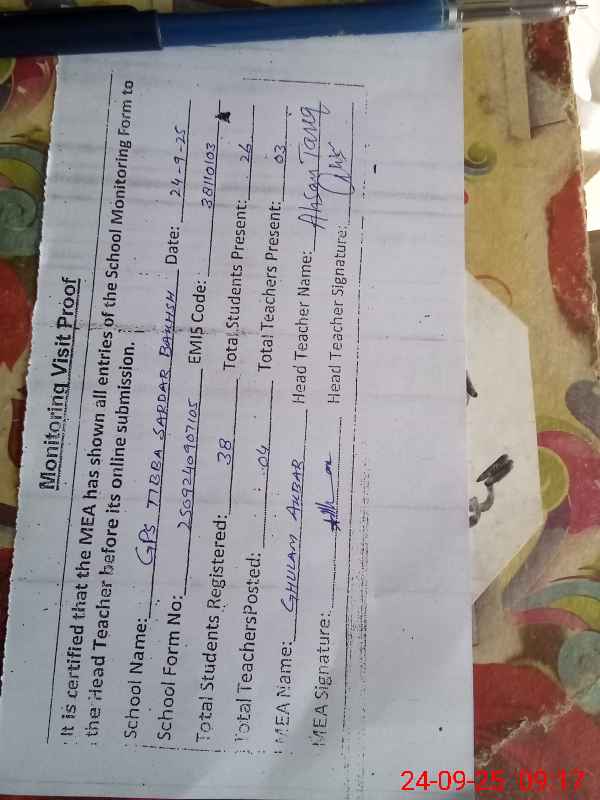 Monitoring Visit Proof
It is certified that the MEA has shown all entries of the School Monitoring Form to
the Head Teacher before its online submission.
School Name: GPS TIBBA SARDAR BAKHSH Date: 24-9-25
School Form No: 2509240907105 EMIS Code: 38110103
Total Students Registered: 38 Total Students Present: 26
Total Teachers Posted: 04 Total Teachers Present: 03
MEA Name: GHULAM AKBAR Head Teacher Name: Ahsan Tariq
MEA Signature: Head Teacher Signature:
24-09-25 09:17